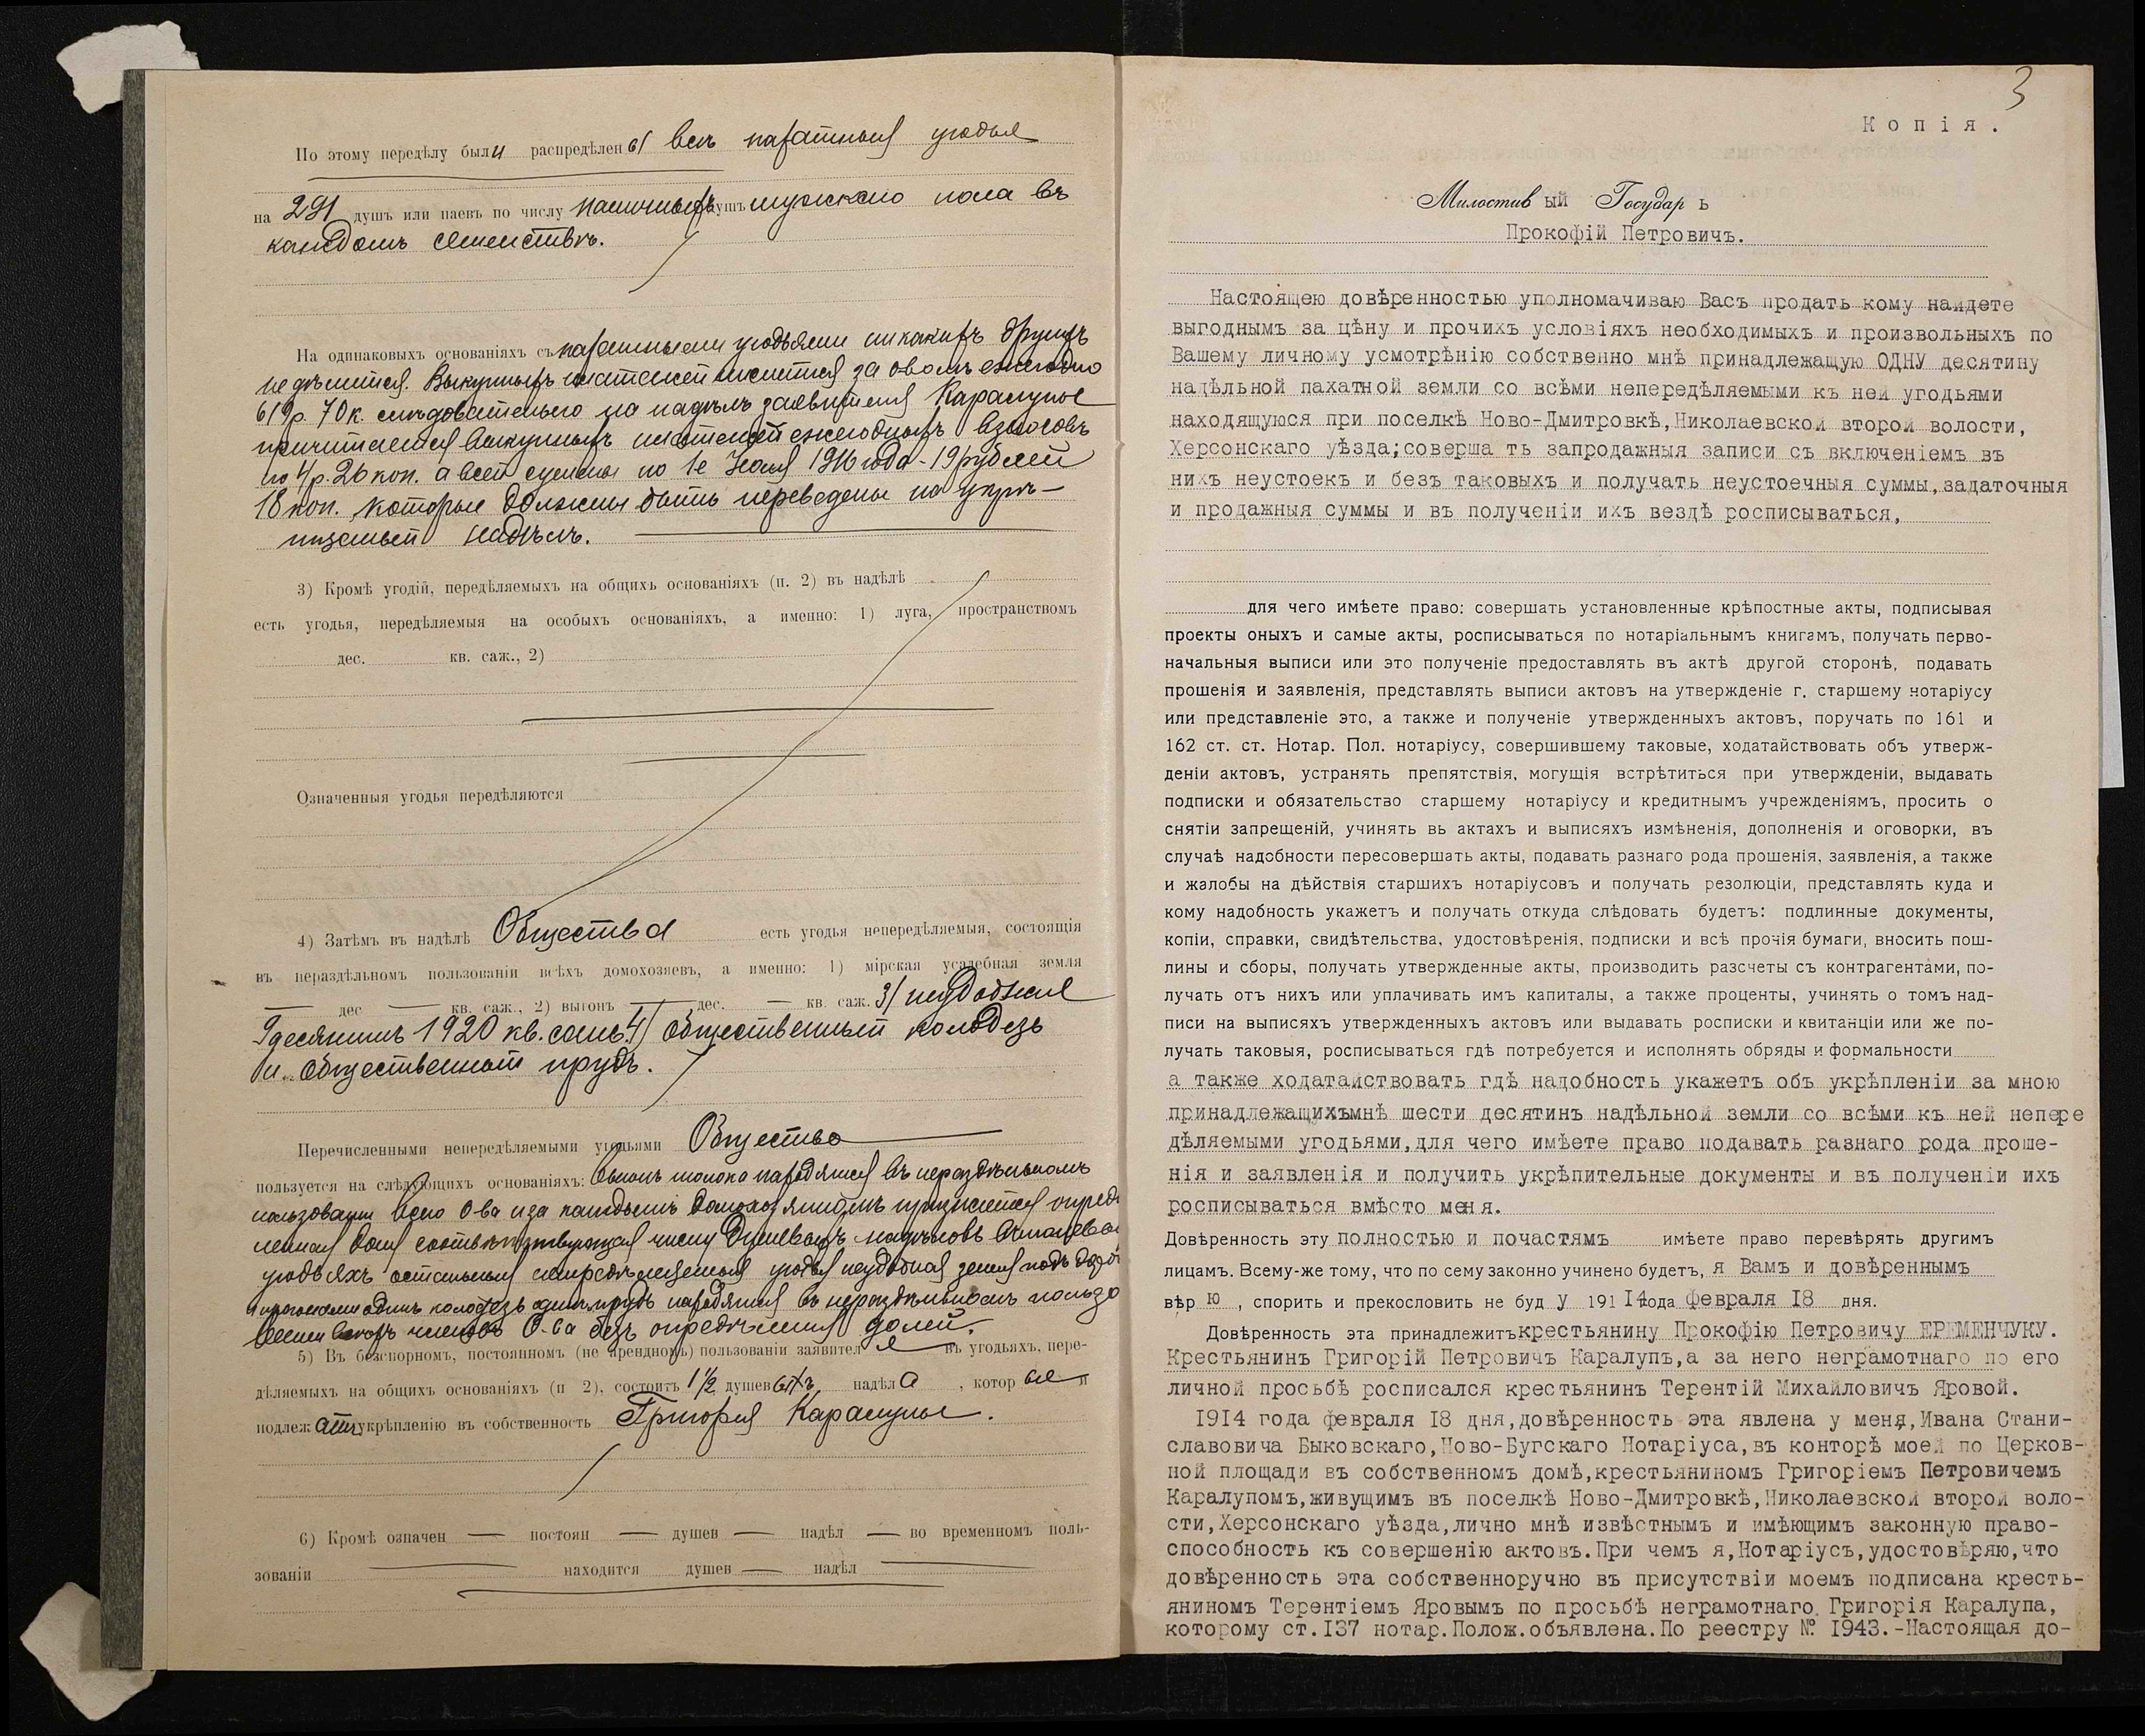 По этому передѣлу были распредѣлены всѣ пахатныя угодья
на 291 душъ или паевъ по числу наличныхъ душъ мужскаго пола въ
каждомъ семействѣ.
На одинаковыхъ основаніяхъ съ пахатными угодьями никакихъ другихъ
не дѣлится. Выкупныхъ платежей числится за о-вомъ ежегодно
619 р. 70 к. слѣдовательно на надѣлъ заявителя Каралупы
причитается выкупныхъ платежей ежегодныхъ взносовъ
по 4 р. 26 коп. а всей суммы по 1е Июля 1916 года - 19 рублей
18 коп. которые должны быть переведены на укрѣ-
пляемый надѣлъ.
3) Кромѣ угодій, передѣляемыхъ на общихъ основаніяхъ (п. 2) въ надѣлѣ
есть угодья, передѣляемыя на особыхъ основаніяхъ, а именно: 1) луга, пространствомъ
дес. кв. саж., 2)
Означенныя угодья передѣляются
4) Затѣмъ въ надѣлѣ Общества есть угодья непередѣляемыя, состоящія
въ нераздѣльномъ пользованіи всѣхъ домохозяевъ, а именно: 1) мірская усадебная земля
— дес — кв. саж., 2) выгонъ — дес. — кв. саж. 3/ неудобная
9 десятинъ 1920 кв. саж. 4/ общественный колодезь
и общественный прудъ.
Перечисленными непередѣляемыми угодьями Общество
пользуется на слѣдующихъ основаніяхъ: выгонъ толока находятся въ нераздѣльномъ
пользованіи всего О-ва и за каждымъ домохозяиномъ признается опредѣ
ленная доля соотвѣтствующая числу душевыхъ надѣловъ
угодьяхъ остальныя непередѣляемыя угодья неудобная земля подъ
одинъ колодезь одинъ прудъ находятся въ нераздѣльномъ пользо
ваніи всѣхъ членовъ О-ва безъ опредѣленія долей.
5) Въ безспорномъ, постоянномъ (не арендномъ) пользованіи заявителя въ угодьяхъ, пере-
дѣляемыхъ на общихъ основаніяхъ (п 2), состоитъ 1½ душевыхъ надѣла, которые и
подлежатъ укрѣпленію въ собственность Григорія Каралупы.
6) Кромѣ означен — постоян — душев — надѣл — во временномъ поль-
зованіи — находится душев — надѣл —
3
Копія.
Милостивый Государь
Прокофій Петровичъ.
Настоящею довѣренностью уполномачиваю Васъ продать кому найдете
выгоднымъ за цѣну и прочихъ условіяхъ необходимыхъ и произвольныхъ по
Вашему личному усмотрѣнію собственно мнѣ принадлежащую ОДНУ десятину
надѣльной пахатной земли со всѣми непередѣляемыми къ ней угодьями
находящуюся при поселкѣ Ново-Дмитровкѣ,Николаевской второй волости,
Херсонскаго уѣзда;соверша ть запродажныя записи съ включеніемъ въ
нихъ неустоекъ и безъ таковыхъ и получать неустоечныя суммы,задаточныя
и продажныя суммы и въ полученіи ихъ вездѣ росписываться,
для чего имѣете право: совершать установленные крѣпостные акты, подписывая
проекты оныхъ и самые акты, росписываться по нотаріальнымъ книгамъ, получать перво-
начальныя выписи или это полученіе предоставлять въ актѣ другой сторонѣ, подавать
прошенія и заявленія, представлять выписи актовъ на утвержденіе г. старшему нотаріусу
или представленіе это, а также и полученіе утвержденныхъ актовъ, поручать по 161 и
162 ст. ст. Нотар. Пол. нотаріусу, совершившему таковые, ходатайствовать объ утверж-
деніи актовъ, устранять препятствія, могущія встрѣтиться при утвержденіи, выдавать
подписки и обязательство старшему нотаріусу и кредитнымъ учрежденіямъ, просить о
снятіи запрещеній, учинять вь актахъ и выписяхъ измѣненія, дополненія и оговорки, въ
случаѣ надобности пересовершать акты, подавать разнаго рода прошенія, заявленія, а также
и жалобы на дѣйствія старшихъ нотаріусовъ и получать резолюціи, представлять куда и
кому надобность укажетъ и получать откуда слѣдовать будетъ: подлинные документы,
копіи, справки, свидѣтельства, удостовѣренія, подписки и всѣ прочія бумаги, вносить пош-
лины и сборы, получать утвержденные акты, производить разсчеты съ контрагентами, по-
лучать отъ нихъ или уплачивать имъ капиталы, а также проценты, учинять о томъ над-
писи на выписяхъ утвержденныхъ актовъ или выдавать росписки и квитанціи или же по-
лучать таковыя, росписываться гдѣ потребуется и исполнять обряды и формальности
а также ходатайствовать гдѣ надобность укажетъ объ укрѣпленіи за мною
принадлежащихъмнѣ шести десятинъ надѣльной земли со всѣми къ ней непере
дѣляемыми угодьями,для чего имѣете право подавать разнаго рода проше-
нія и заявленія и получить укрѣпительные документы и въ полученіи ихъ
росписываться вмѣсто меня.
Довѣренность эту полностью и почастямъ имѣете право перевѣрять другимъ
лицамъ. Всему-же тому, что по сему законно учинено будетъ, я Вамъ и довѣреннымъ
вѣр ю , спорить и прекословить не буд у 191 I4года февраля I8 дня.
Довѣренность эта принадлежитъ крестьянину Прокофію Петровичу ЕРЕМЕНЧУКУ.
Крестьянинъ Григорій Петровичъ Каралупъ,а за него неграмотнаго по его
личной просьбѣ росписался крестьянинъ Терентій Михайловичъ Яровой.
I9I4 года февраля I8 дня,довѣренность эта явлена у меня,Ивана Стани-
славовича Быковскаго,Ново-Бугскаго Нотаріуса,въ конторѣ моей по Церков-
ной площади въ собственномъ домѣ,крестьяниномъ Григоріемъ Петровичемъ
Каралупомъ,живущимъ въ поселкѣ Ново-Дмитровкѣ,Николаевской второй воло-
сти,Херсонскаго уѣзда,лично мнѣ извѣстнымъ и имѣющимъ законную право-
способность къ совершенію актовъ.При чемъ я,Нотаріусъ,удостовѣряю,что
довѣренность эта собственноручно въ присутствіи моемъ подписана кресть-
яниномъ Терентіемъ Яровымъ по просьбѣ неграмотнаго Григорія Каралупа,
которому ст.I37 нотар.Полож.объявлена.По реестру № I943.-Настоящая до-